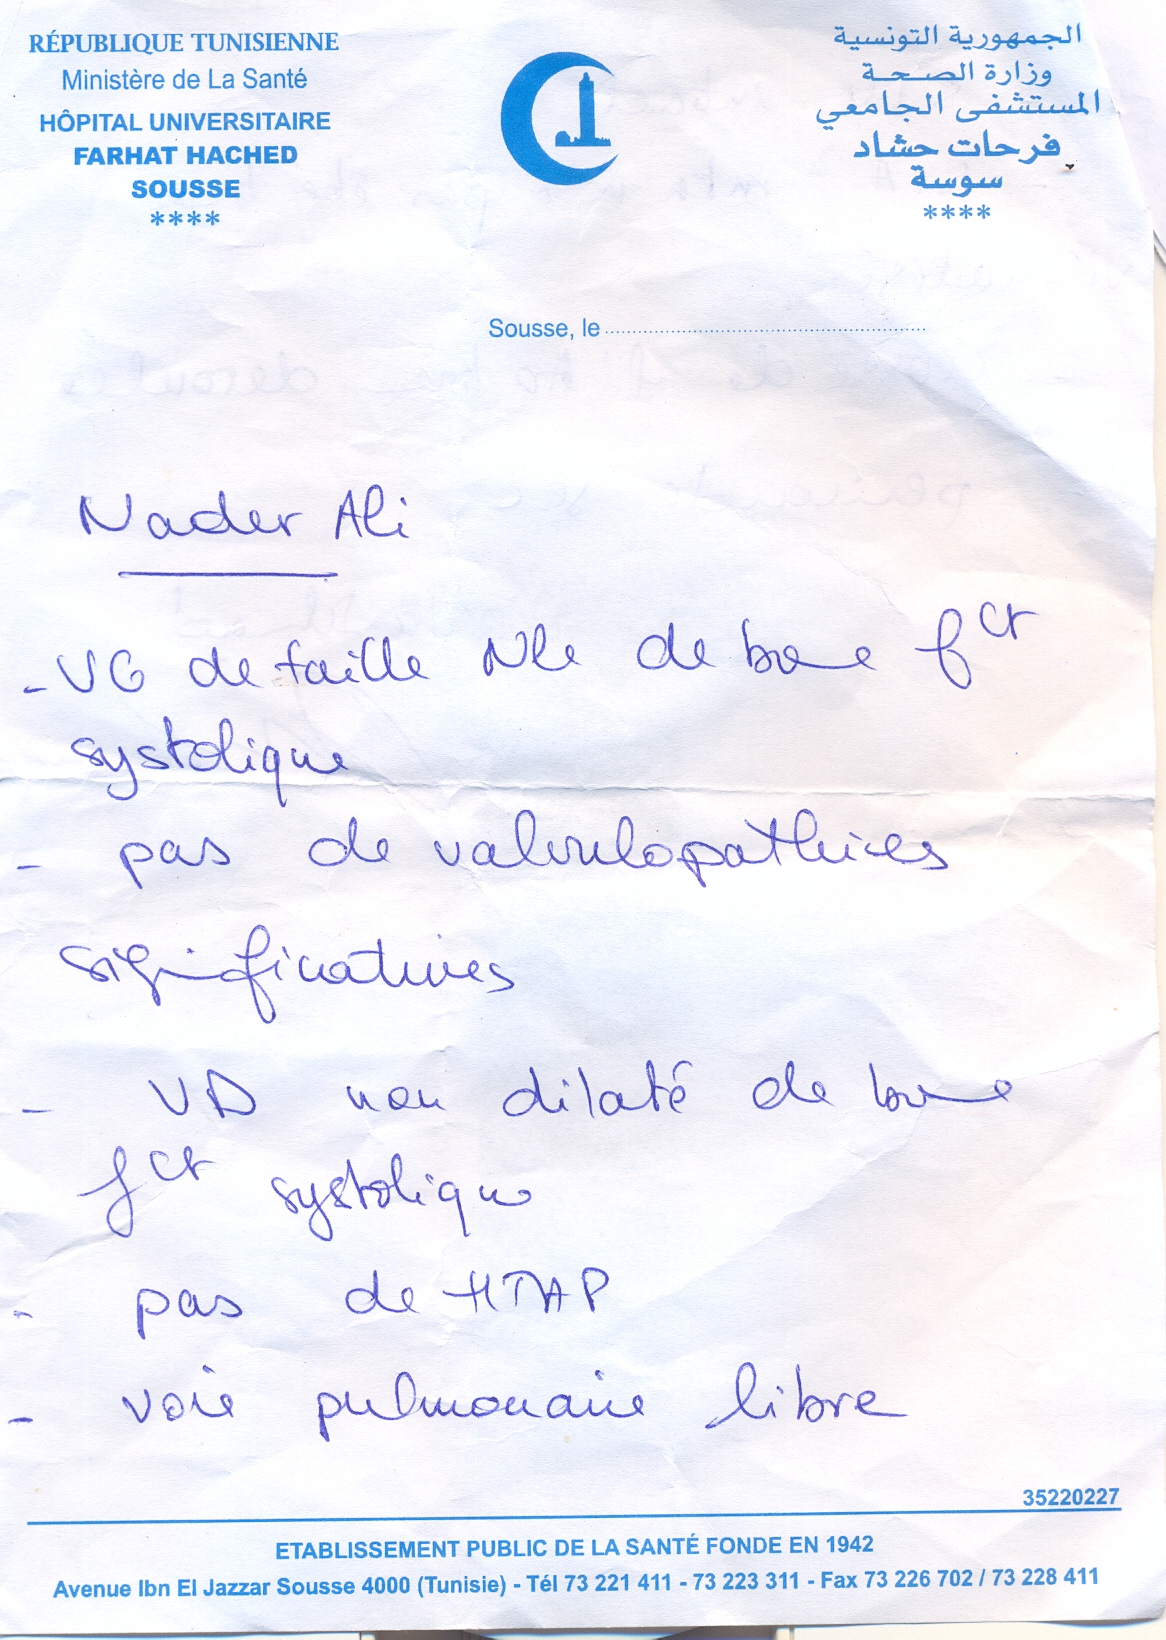 RÉPUBLIQUE TUNISIENNE
Ministère de La Santé
HÔPITAL UNIVERSITAIRE
FARHAT HACHED
SOUSSE
****
الجمهورية التونسية
وزارة الصحة
المستشفى الجامعي
فرحات حشاد
سوسة
****
Sousse, le
Nader Ali
- VG de taille Nle de bonne fct
systolique
- pas de valvulopathies
significatives
- VD non dilaté de bonne
fct systolique
- pas de HTAP
- voie pulmonaire libre
35220227
ETABLISSEMENT PUBLIC DE LA SANTÉ FONDE EN 1942
Avenue Ibn El Jazzar Sousse 4000 (Tunisie) - Tél 73 221 411 - 73 223 311 - Fax 73 226 702 / 73 228 411